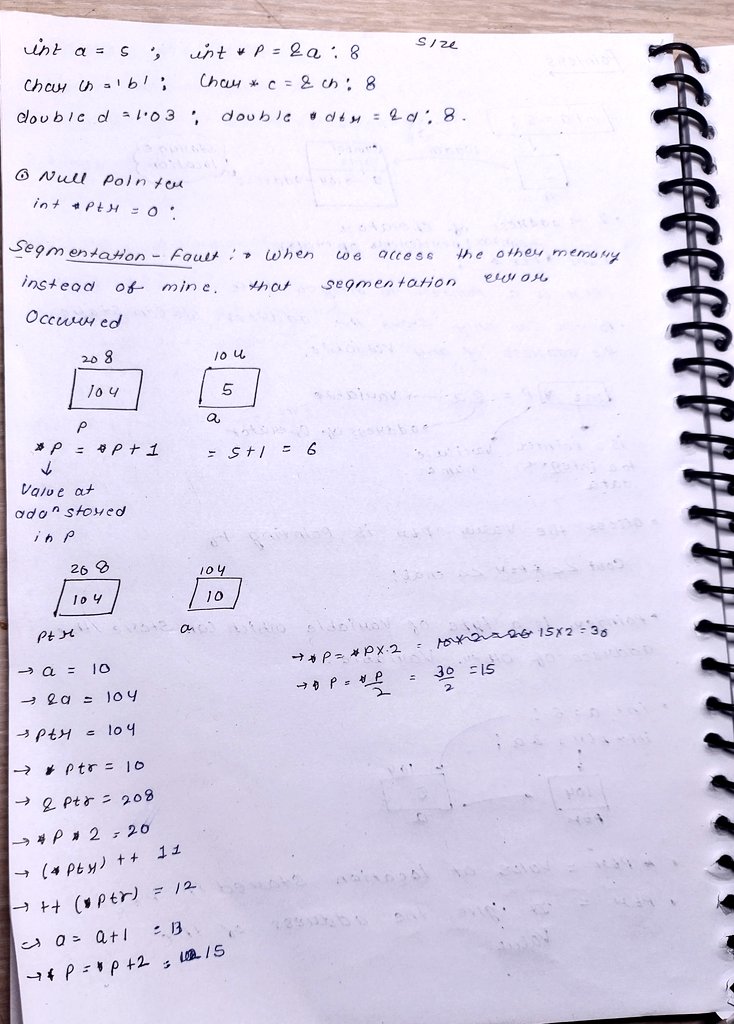 size
int a = 5 ; int * p = &a : 8
char ch = 'b' ; char * c = & ch : 8
double d = 1.03 ; double * dtr = &d : 8.
⊙ Null Pointer
int *ptr = 0 ;
Segmentation-fault : → when we access the other memory
instead of mine. that segmentation error
Occurred
208 104
104 5
p a
*p = *p + 1 = 5+1 = 6
↓
Value at
addn stored
in p
208 104
104 10
ptr a
→ a = 10
→ &a = 104
→ ptr = 104
→ * ptr = 10
→ & ptr = 208
→ *p * 2 = 20
→ (*ptr) ++ 11
→ ++ (*ptr) = 12
→ a = a+1 = 13
→ *p = *p + 2 = 15
→ *p = *p x 2 = 15x2 = 30
→ * p = *p/2 = 30/2 = 15